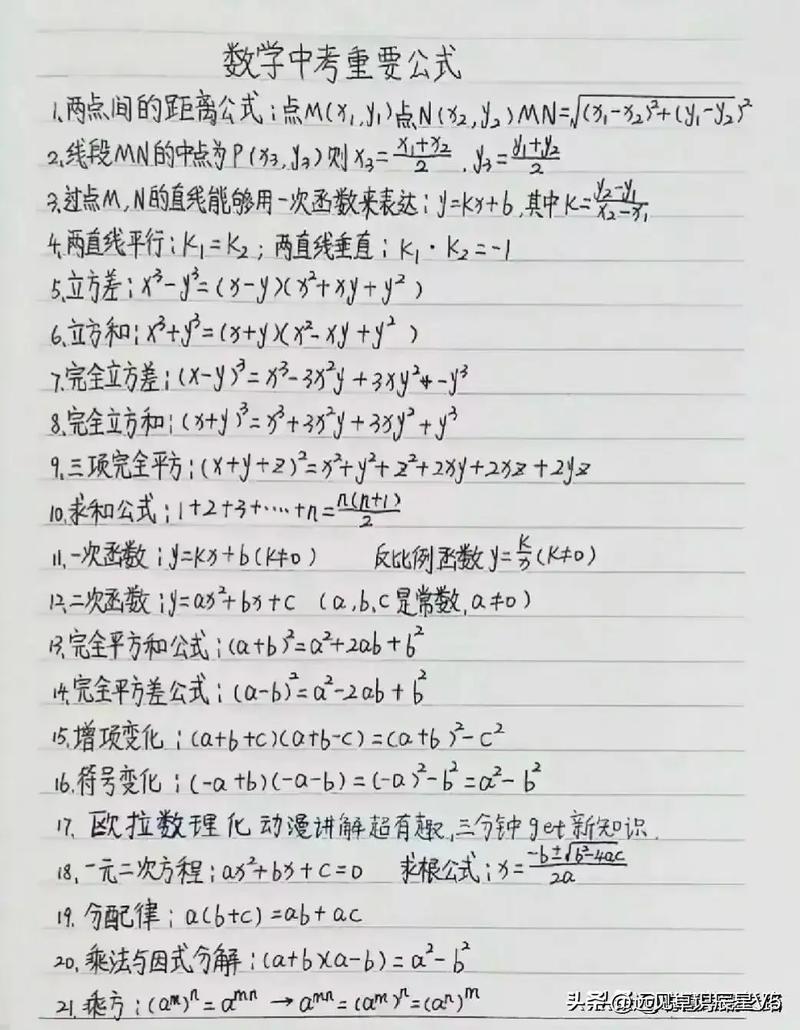 数学中考重要公式
1、两点间的距离公式：点M(x₁,y₁)点N(x₂,y₂)MN=√(x₁-x₂)²+(y₁-y₂)²
2、线段MN的中点为P(x₃,y₃)则x₃=(x₁+x₂)/2，y₃=(y₁+y₂)/2
3、过点M,N的直线能够用一次函数来表达：y=kx+b,其中k=(y₂-y₁)/(x₂-x₁)
4、两直线平行：k₁=k₂；两直线垂直：k₁·k₂=-1
5、立方差：x³-y³=(x-y)(x²+xy+y²)
6、立方和：x³+y³=(x+y)(x²-xy+y²)
7、完全立方差：(x-y)³=x³-3x²y+3xy²-y³
8、完全立方和：(x+y)³=x³+3x²y+3xy²+y³
9、三项完全平方：(x+y+z)²=x²+y²+z²+2xy+2xz+2yz
10、求和公式：1+2+3+……+n=n(n+1)/2
11、一次函数：y=kx+b(k≠0) 反比例函数y=k/x(k≠0)
12、二次函数：y=ax²+bx+c (a,b,c是常数,a≠0)
13、完全平方和公式：(a+b)²=a²+2ab+b²
14、完全平方差公式：(a-b)²=a²-2ab+b²
15、增项变化：(a+b+c)(a+b-c)=(a+b)²-c²
16、符号变化：(-a+b)(-a-b)=(-a)²-b²=a²-b²
17、欧拉数理化动漫讲解超有趣,三分钟get新知识.
18、一元二次方程：ax²+bx+c=0 求根公式：x=(-b±√b²-4ac)/2a
19、分配律：a(b+c)=ab+ac
20、乘法与因式分解：(a+b)(a-b)=a²-b²
21、乘方：(aᵐ)ⁿ=aᵐⁿ→aᵐⁿ=(aᵐ)ⁿ=(aⁿ)ᵐ
头条@远见